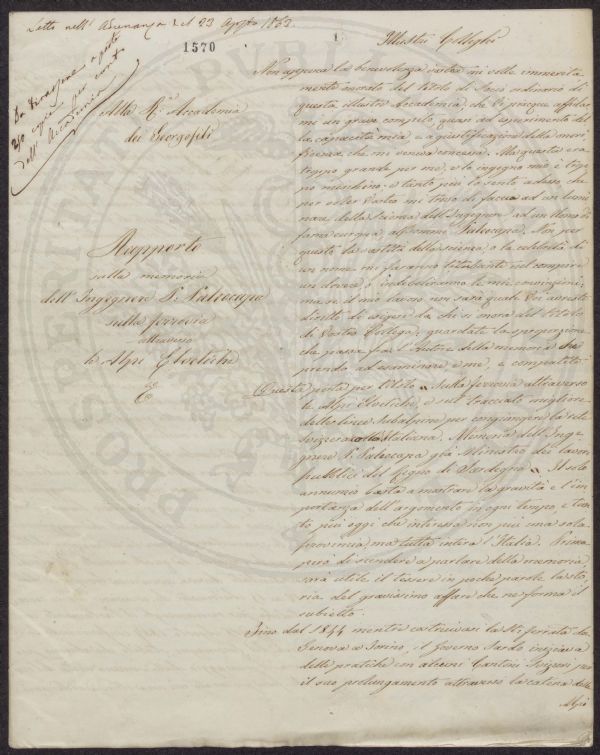 Letto nell'Adunanza del 23 Agosto 1863.
1570
1
Da tirarsene a parte
250 copie per conto
dell'Accademia
Alla R.ª Accademia
dei Georgofili
Rapporto
sulla memoria
dell'Ingegnere P. Paleocapa
sulla ferrovia
attraverso
le Alpi Elvetiche
Illustri Colleghi
Non appena la benevolenza vostra mi volle immerita
mente onorato del titolo di Socio ordinario di
questa illustre Accademia, che Vi piacque affidar
mi un grave compito, quasi ad esperimento del
la capacità mia, e a giustificazione della onori
ficenza, che mi veniva concessa. Ma questo era
troppo grande per me, e lo ingegno mio è trop
po meschino: e tanto più lo sento adesso, che
per voler Vostro mi trovo di faccia ad un lumi
nare della Scienza dell'Ingegnere, ad un Uomo di
fama europea, al sommo Paleocapa. Non per
questo la vastità della scienza, o la celebrità di
un nome mi faranno titubante nel compiere
un dovere, o indeboliranno le mie convinzioni;
ma se il mio lavoro non sarà quale Voi avreste
diritto di esigere da chi si onora del titolo
di Vostro Collega, guardate la sproporzione
che passa fra l'Autore della memoria che
prendo ad esaminare, e me, e compatitemi.
Questa porta per titolo = Sulla ferrovia attraverso
le Alpi Elvetiche, e sul tracciato migliore
delle linee Subalpine per congiungere la rete
Svizzera alla Italiana. Memoria dell'Inge
gnere P. Paleocapa già Ministro dei lavori
pubblici del Regno di Sardegna =. Il solo
annunzio basta a mostrare la gravità e l'im
portanza dell'argomento in ogni tempo, e tan
to più oggi che interessa non più una sola
provincia, ma tutta intera l'Italia. Prima
però di scendere a parlare della memoria,
sarà utile il tessere in poche parole la sto
ria del gravissimo affare che ne forma il
subietto.
Fino dal 1844 mentre costruivasi la St. ferrata da
Genova a Torino, il Governo Sardo iniziava
delle pratiche con alcuni Cantoni Svizzeri per
il suo prolungamento attraverso la catena delle
Alpi
PROSPERITATI PUBLICAE